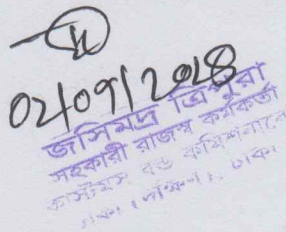 02/09/2028
জসিমদ্র ত্রিপুরা
সহকারী রাজস্ব কর্মকর্তা
কাস্টমস বন্ড কমিশনারেট
ঢাকা (দক্ষিণ), ঢাকা